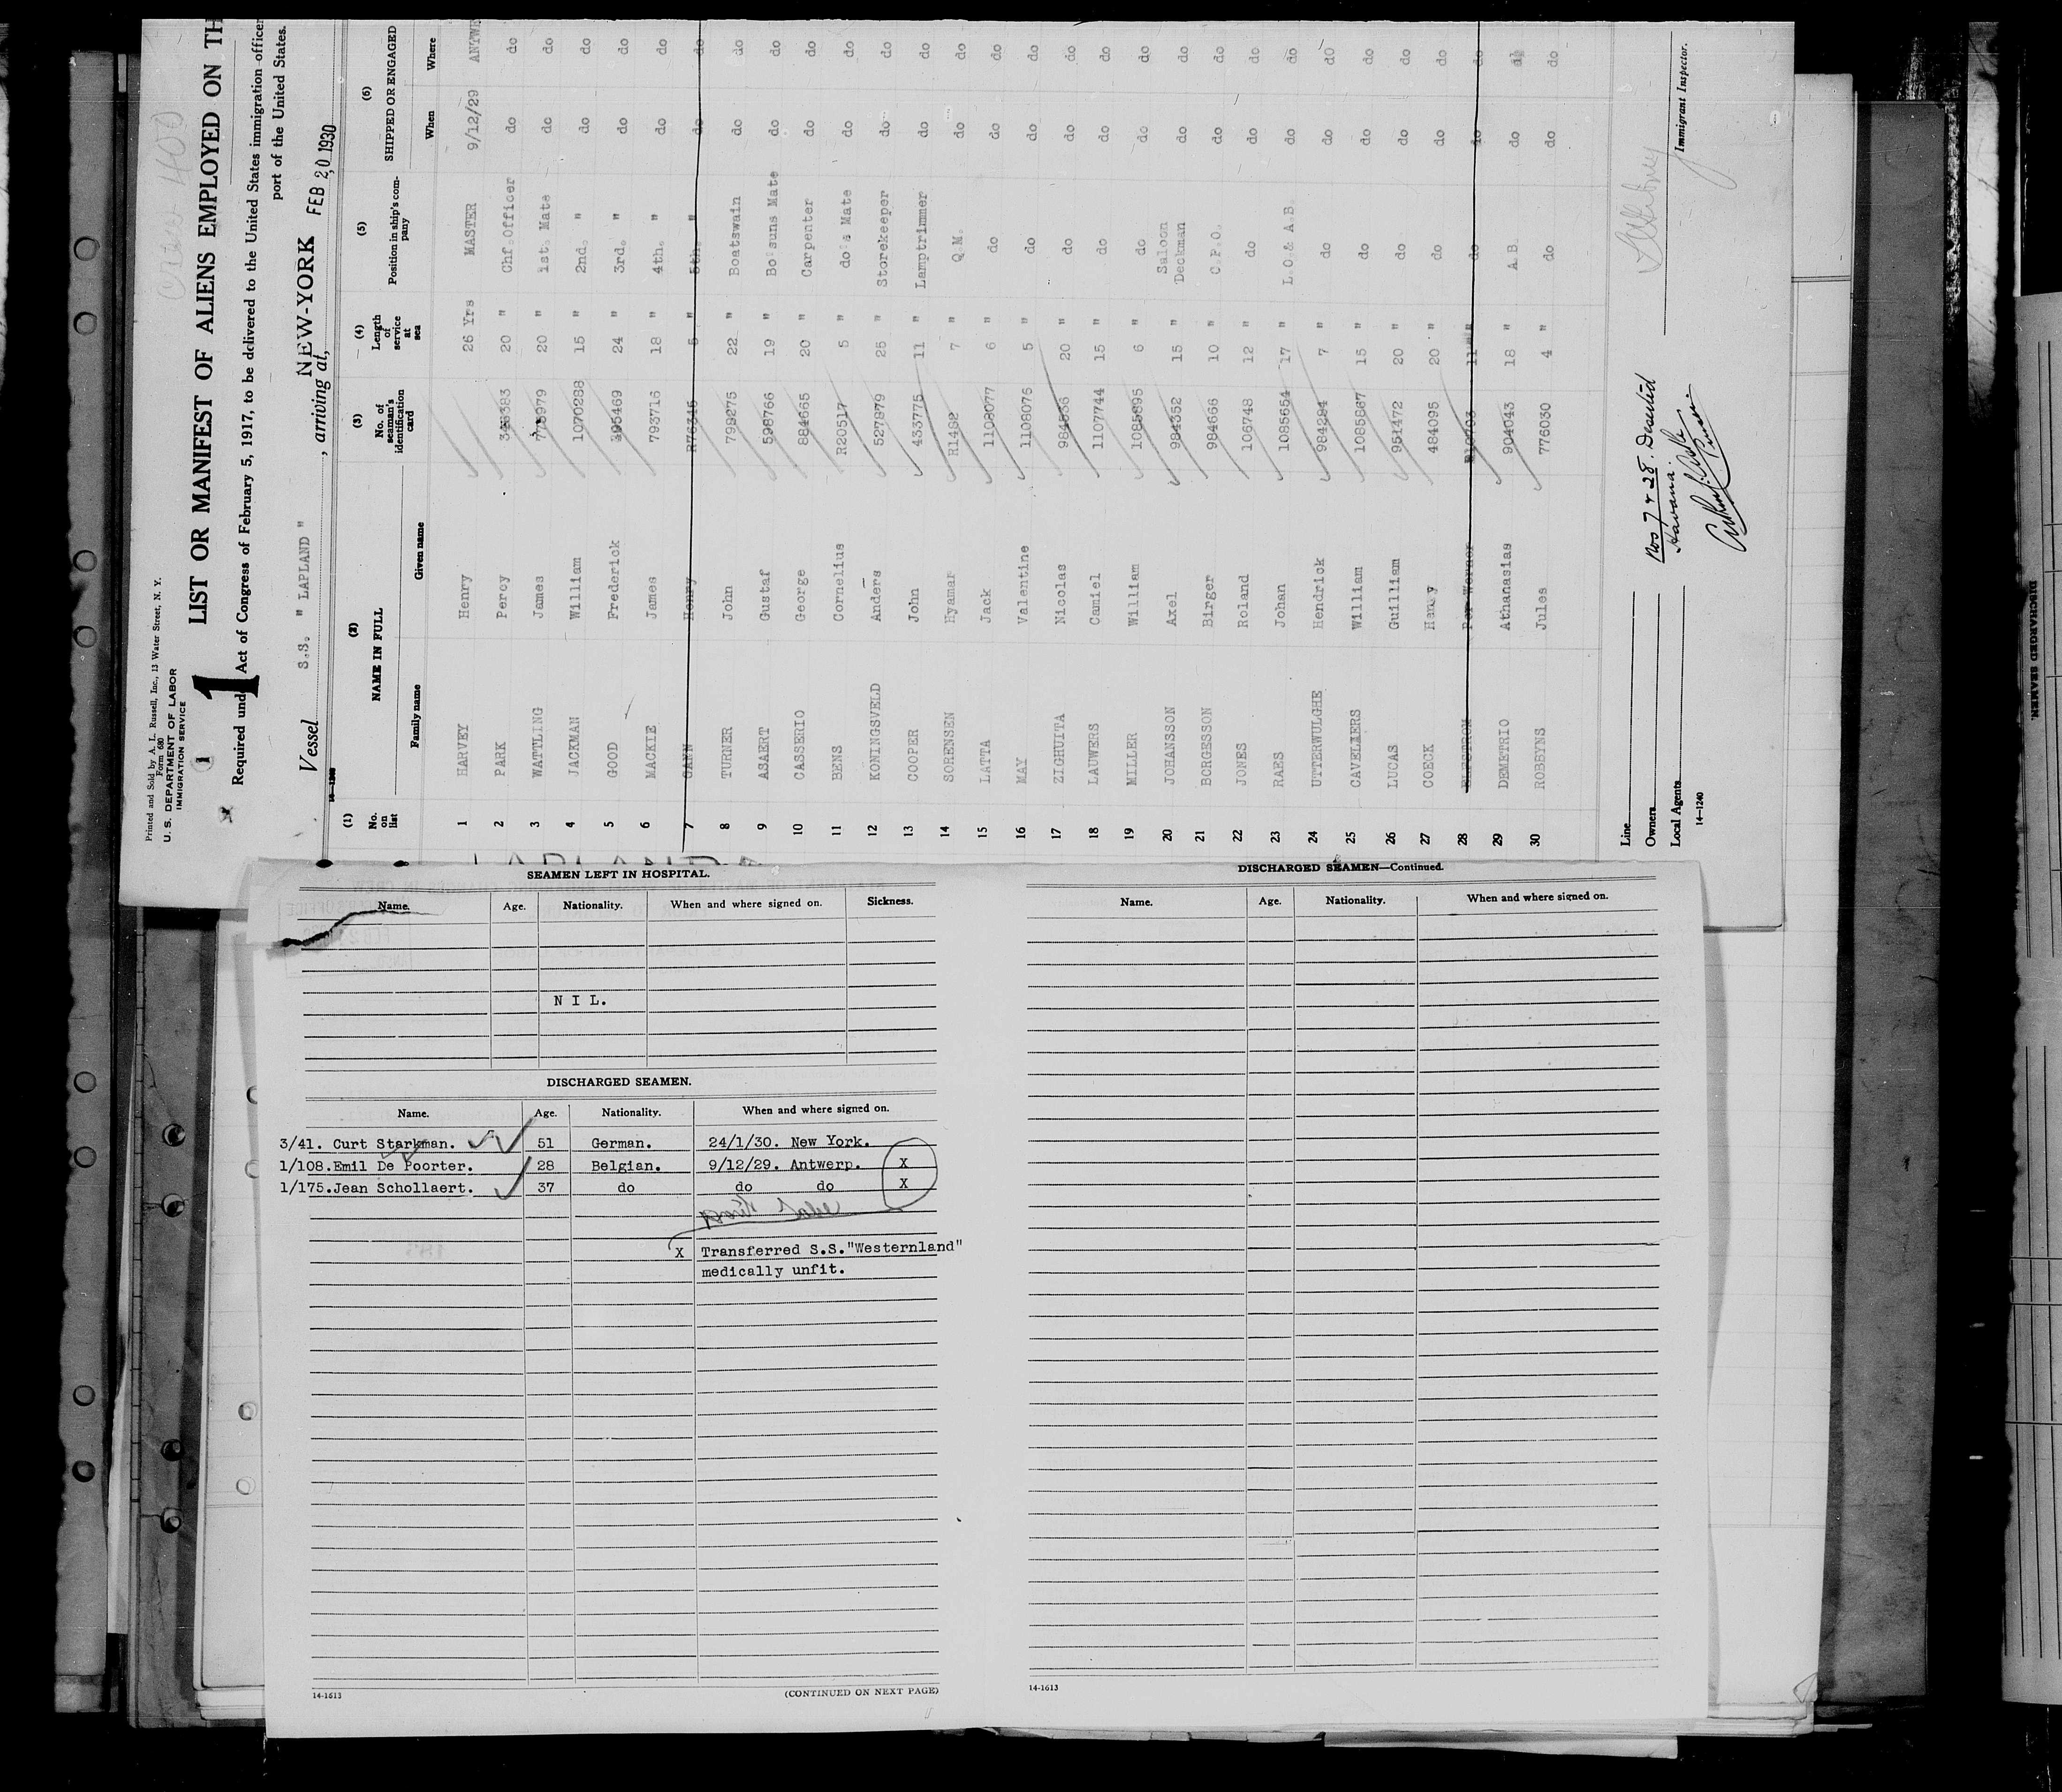 Printed and Sold by A. L. Russell, Inc., 13 Water Street, N. Y.
Form 680
U. S. DEPARTMENT OF LABOR
IMMIGRATION SERVICE
1
1 LIST OR MANIFEST OF ALIENS EMPLOYED ON TH
Required und Act of Congress of February 5, 1917, to be delivered to the United States immigration officer
port of the United States.
Vessel S.S. " LAPLAND " , arriving at, NEW-YORK FEB 20 1930
(1) (2) (3) (4) (5) (6)
No. on list NAME IN FULL No. of seaman's identification card Length of service at sea Position in ship's company SHIPPED OR ENGAGED
Family name Given name When Where
1 HARVEY Henry 26 Yrs MASTER 9/12/29 ANTWE
2 PARK Percy 20 " Chf.Officer do do
3 WATTLING James 20 " 1st. Mate do do
4 JACKMAN William 1070288 15 " 2nd. " do do
5 GOOD Frederick 24 " 3rd. " do do
6 MACKIE James 793716 18 " 4th. " do do
7 GANN Henry R76346 5 " 5th. " do do
8 TURNER John 799275 22 " Boatswain do do
9 ASAERT Gustaf 598766 19 " Bo'suns Mate do do
10 CASSERIO George 884665 20 " Carpenter do do
11 BENS Cornelius R20517 5 " do's Mate do do
12 KONINGSVELD Anders 527879 25 " Storekeeper do do
13 COOPER John 433775 11 " Lamptrimmer do do
14 SORENSEN Hyamar R1482 7 " Q.M. do do
15 LATTA Jack 1108077 6 " do do do
16 MAY Valentine 1108075 5 " do do do
17 ZIGHUITA Nicolas 20 " do do do
18 LAUWERS Camiel 1107744 15 " do do do
19 MILLER William 1085695 6 " do do do
20 JOHANSSON Axel 984352 15 " Saloon Deckman do do
21 BORGESSON Birger 984666 10 " C.P.O. do do
22 JONES Roland 106748 12 " do do do
23 RAES Johan 1085654 17 " L.O.& A.B. do do
24 UTTERWULGHE Hendrick 984284 7 " do do do
25 CAVELAERS William 1085867 15 " do do do
26 LUCAS Guilliam 951472 20 " do do do
27 COECK Henry 484095 20 " do do do
28 Per Werner 11 " do do do
29 DEMETRIO Athanasias 904043 18 " A.B. do do
30 ROBBYNS Jules 776030 4 " do do do
Line
Owners
Local Agents
14-1240
Nos 7 & 28. Deserted
Havana.
Immigrant Inspector.
SEAMEN LEFT IN HOSPITAL.
Name. Age. Nationality. When and where signed on. Sickness.
N I L.
DISCHARGED SEAMEN.
Name. Age. Nationality. When and where signed on.
3/41. Curt Starkman. 51 German. 24/1/30. New York.
1/108.Emil De Poorter. 28 Belgian. 9/12/29. Antwerp. X
1/175.Jean Schollaert. 37 do do do X
X Transferred S.S."Westernland"
medically unfit.
14-1613 (CONTINUED ON NEXT PAGE)
DISCHARGED SEAMEN—Continued.
Name. Age. Nationality. When and where signed on.
14-1613
DISCHARGED SEAMEN.